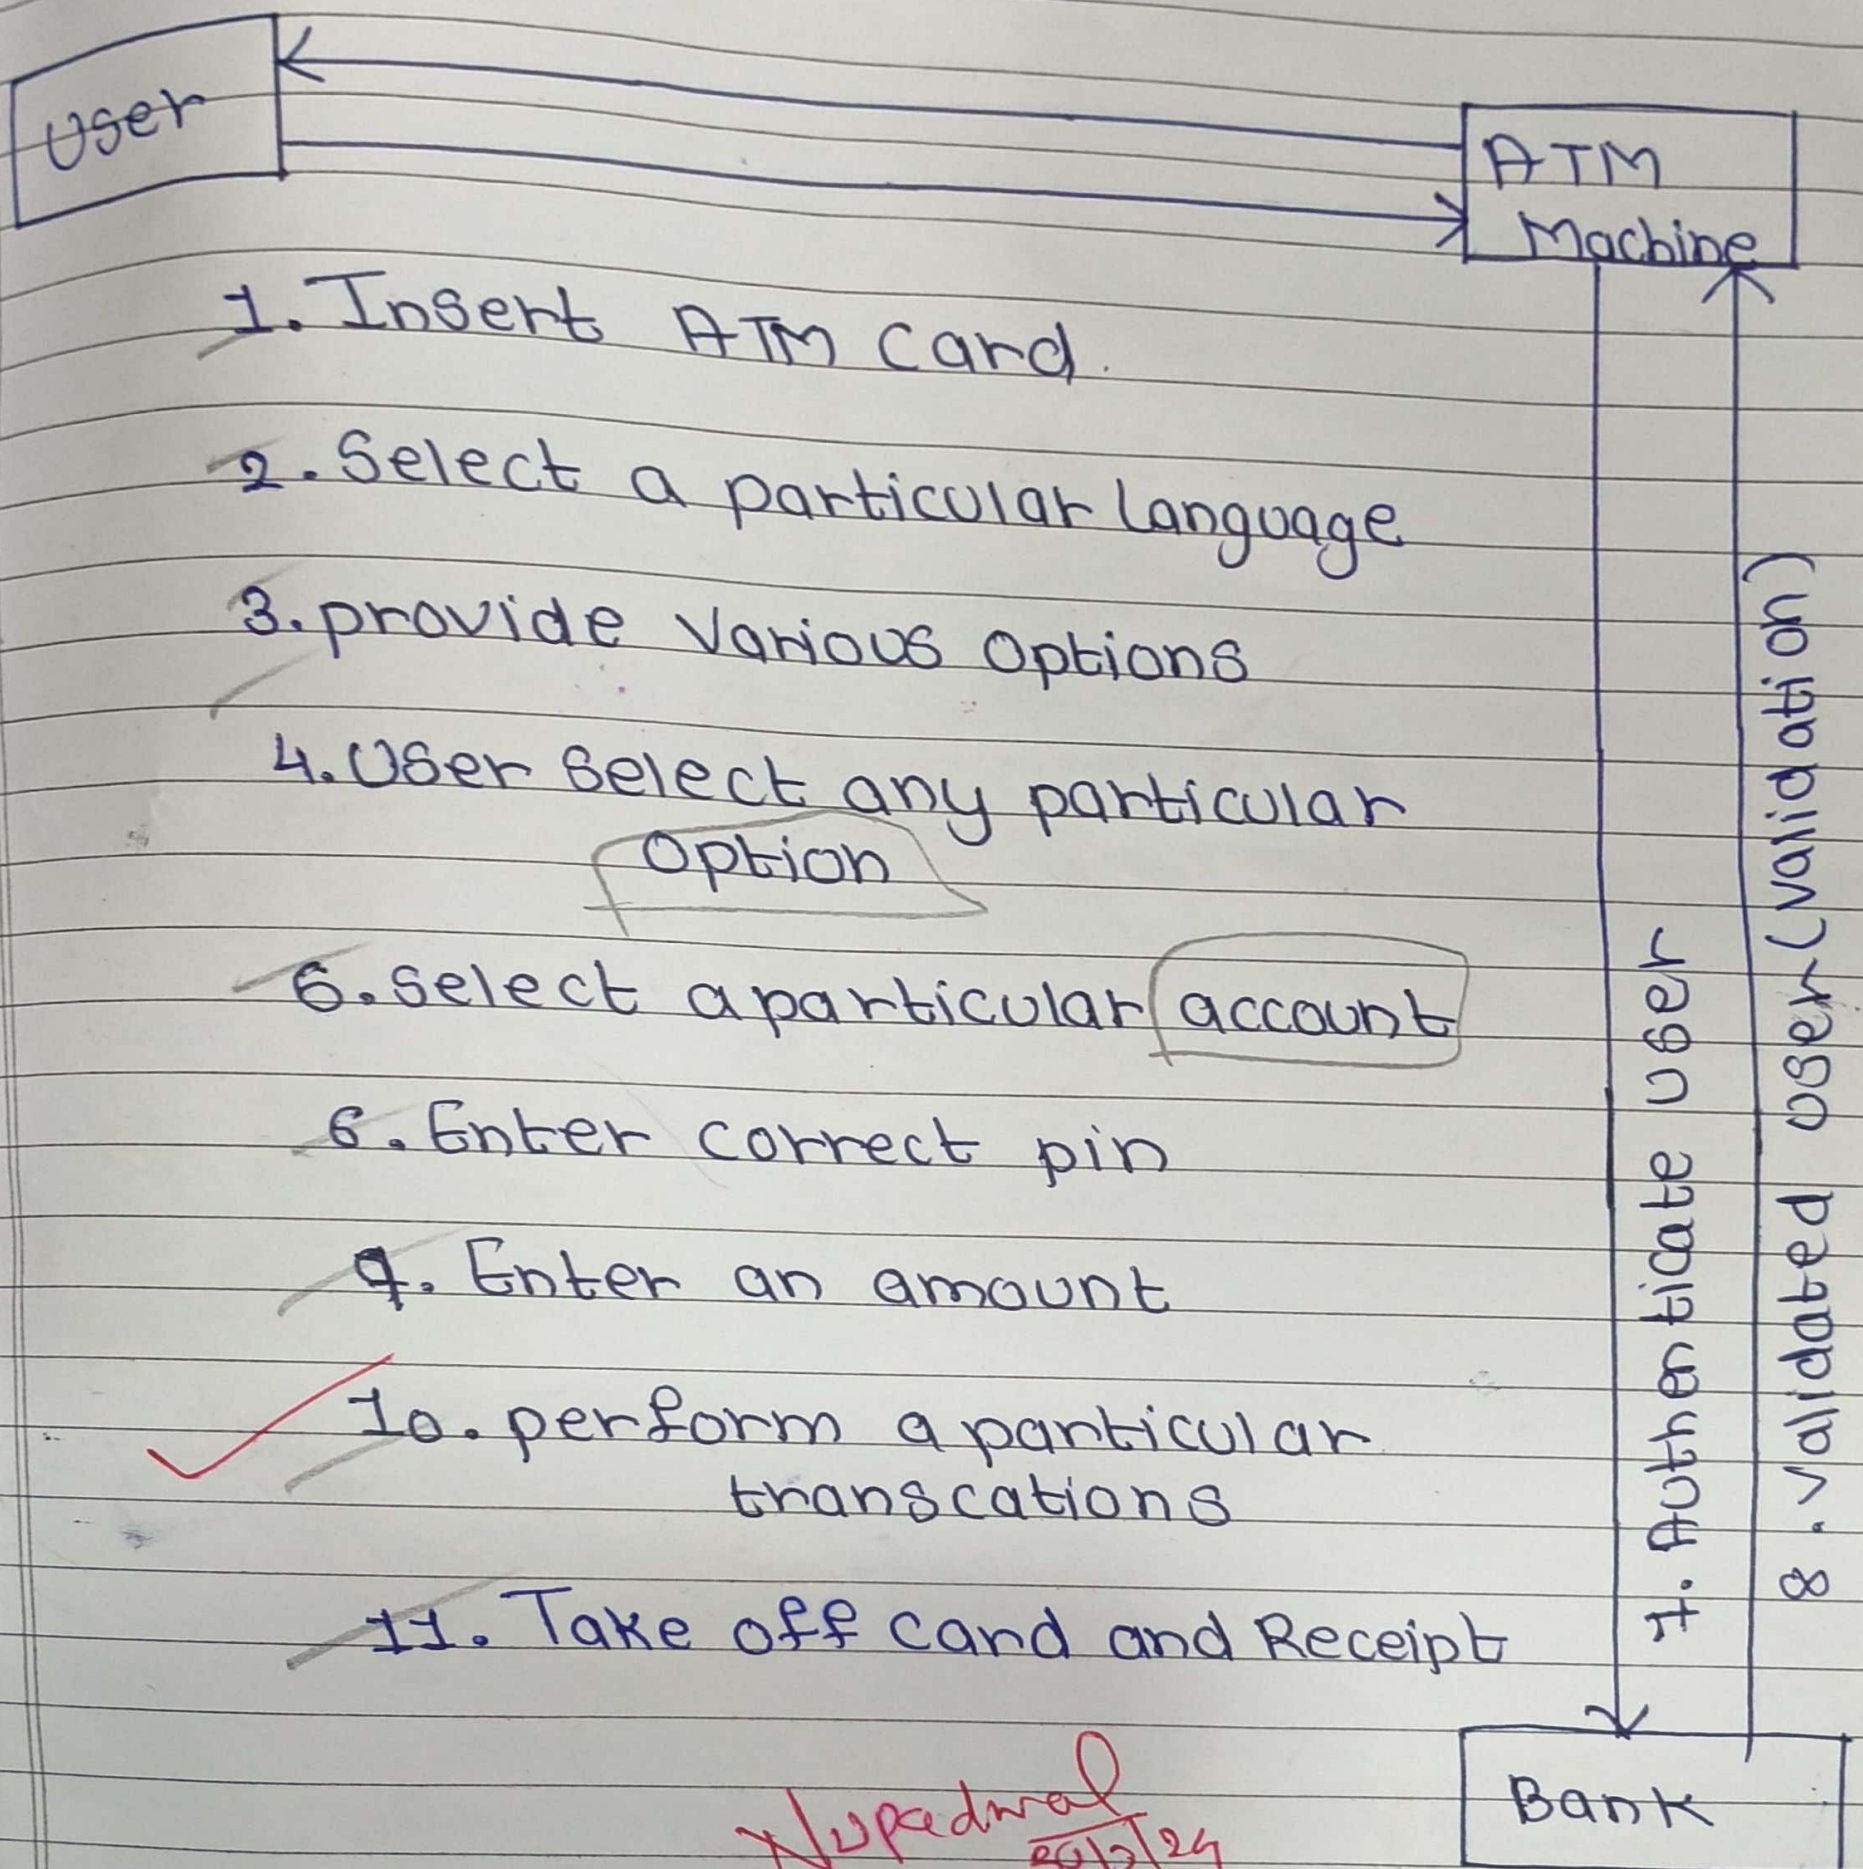 User
ATM
Machine
1. Insert ATM card.
2. Select a particular Language
3. provide various options
4. User select any particular
option
5. select a particular account
6. Enter correct pin
9. Enter an amount
10. perform a particular
transcations
11. Take off card and Receipt
7. Authenticate user
8. validated user (validation)
Bank